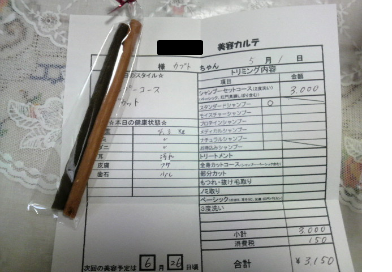 美容カルテ
様 カブト ちゃん 5月1日
トリミング内容
項目 金額
シャンプーセットコース 3,000
スタンダードシャンプー ○
モイスチャーシャンプー
プロテインシャンプー
メディカルシャンプー
ナチュラルシャンプー
トリートメント
全身カットコース
部分カット
もつれ・抜け毛取り
ノミ取り
ベーシック
三度洗い
小計 3,000
消費税 150
合計 ¥3,150
スタイル☆
コース
カット
☆本日の健康状態☆
耳
皮膚
歯石
次回の美容予定は 6月26日頃